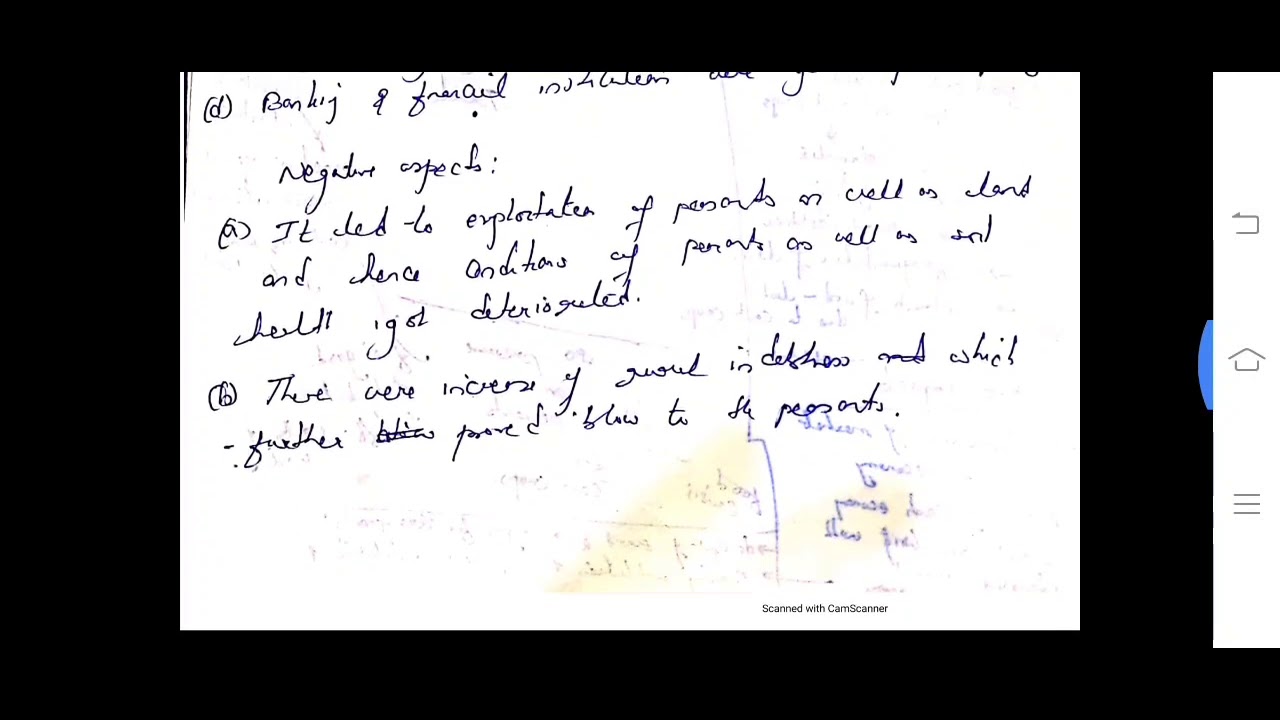 (d) Banking & financial institutions were
Negative aspects:
(a) It led to exploitation of peasants as well as land
and hence conditions of peasants as well as soil
health got deteriorated.
(b) There were increase of rural indebtness which
further proved blow to the peasants.
Scanned with CamScanner